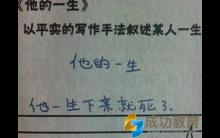 《他的一生》
以平实的写作手法叙述某人一生
他的一生
他一生下来就死了.
成功教育